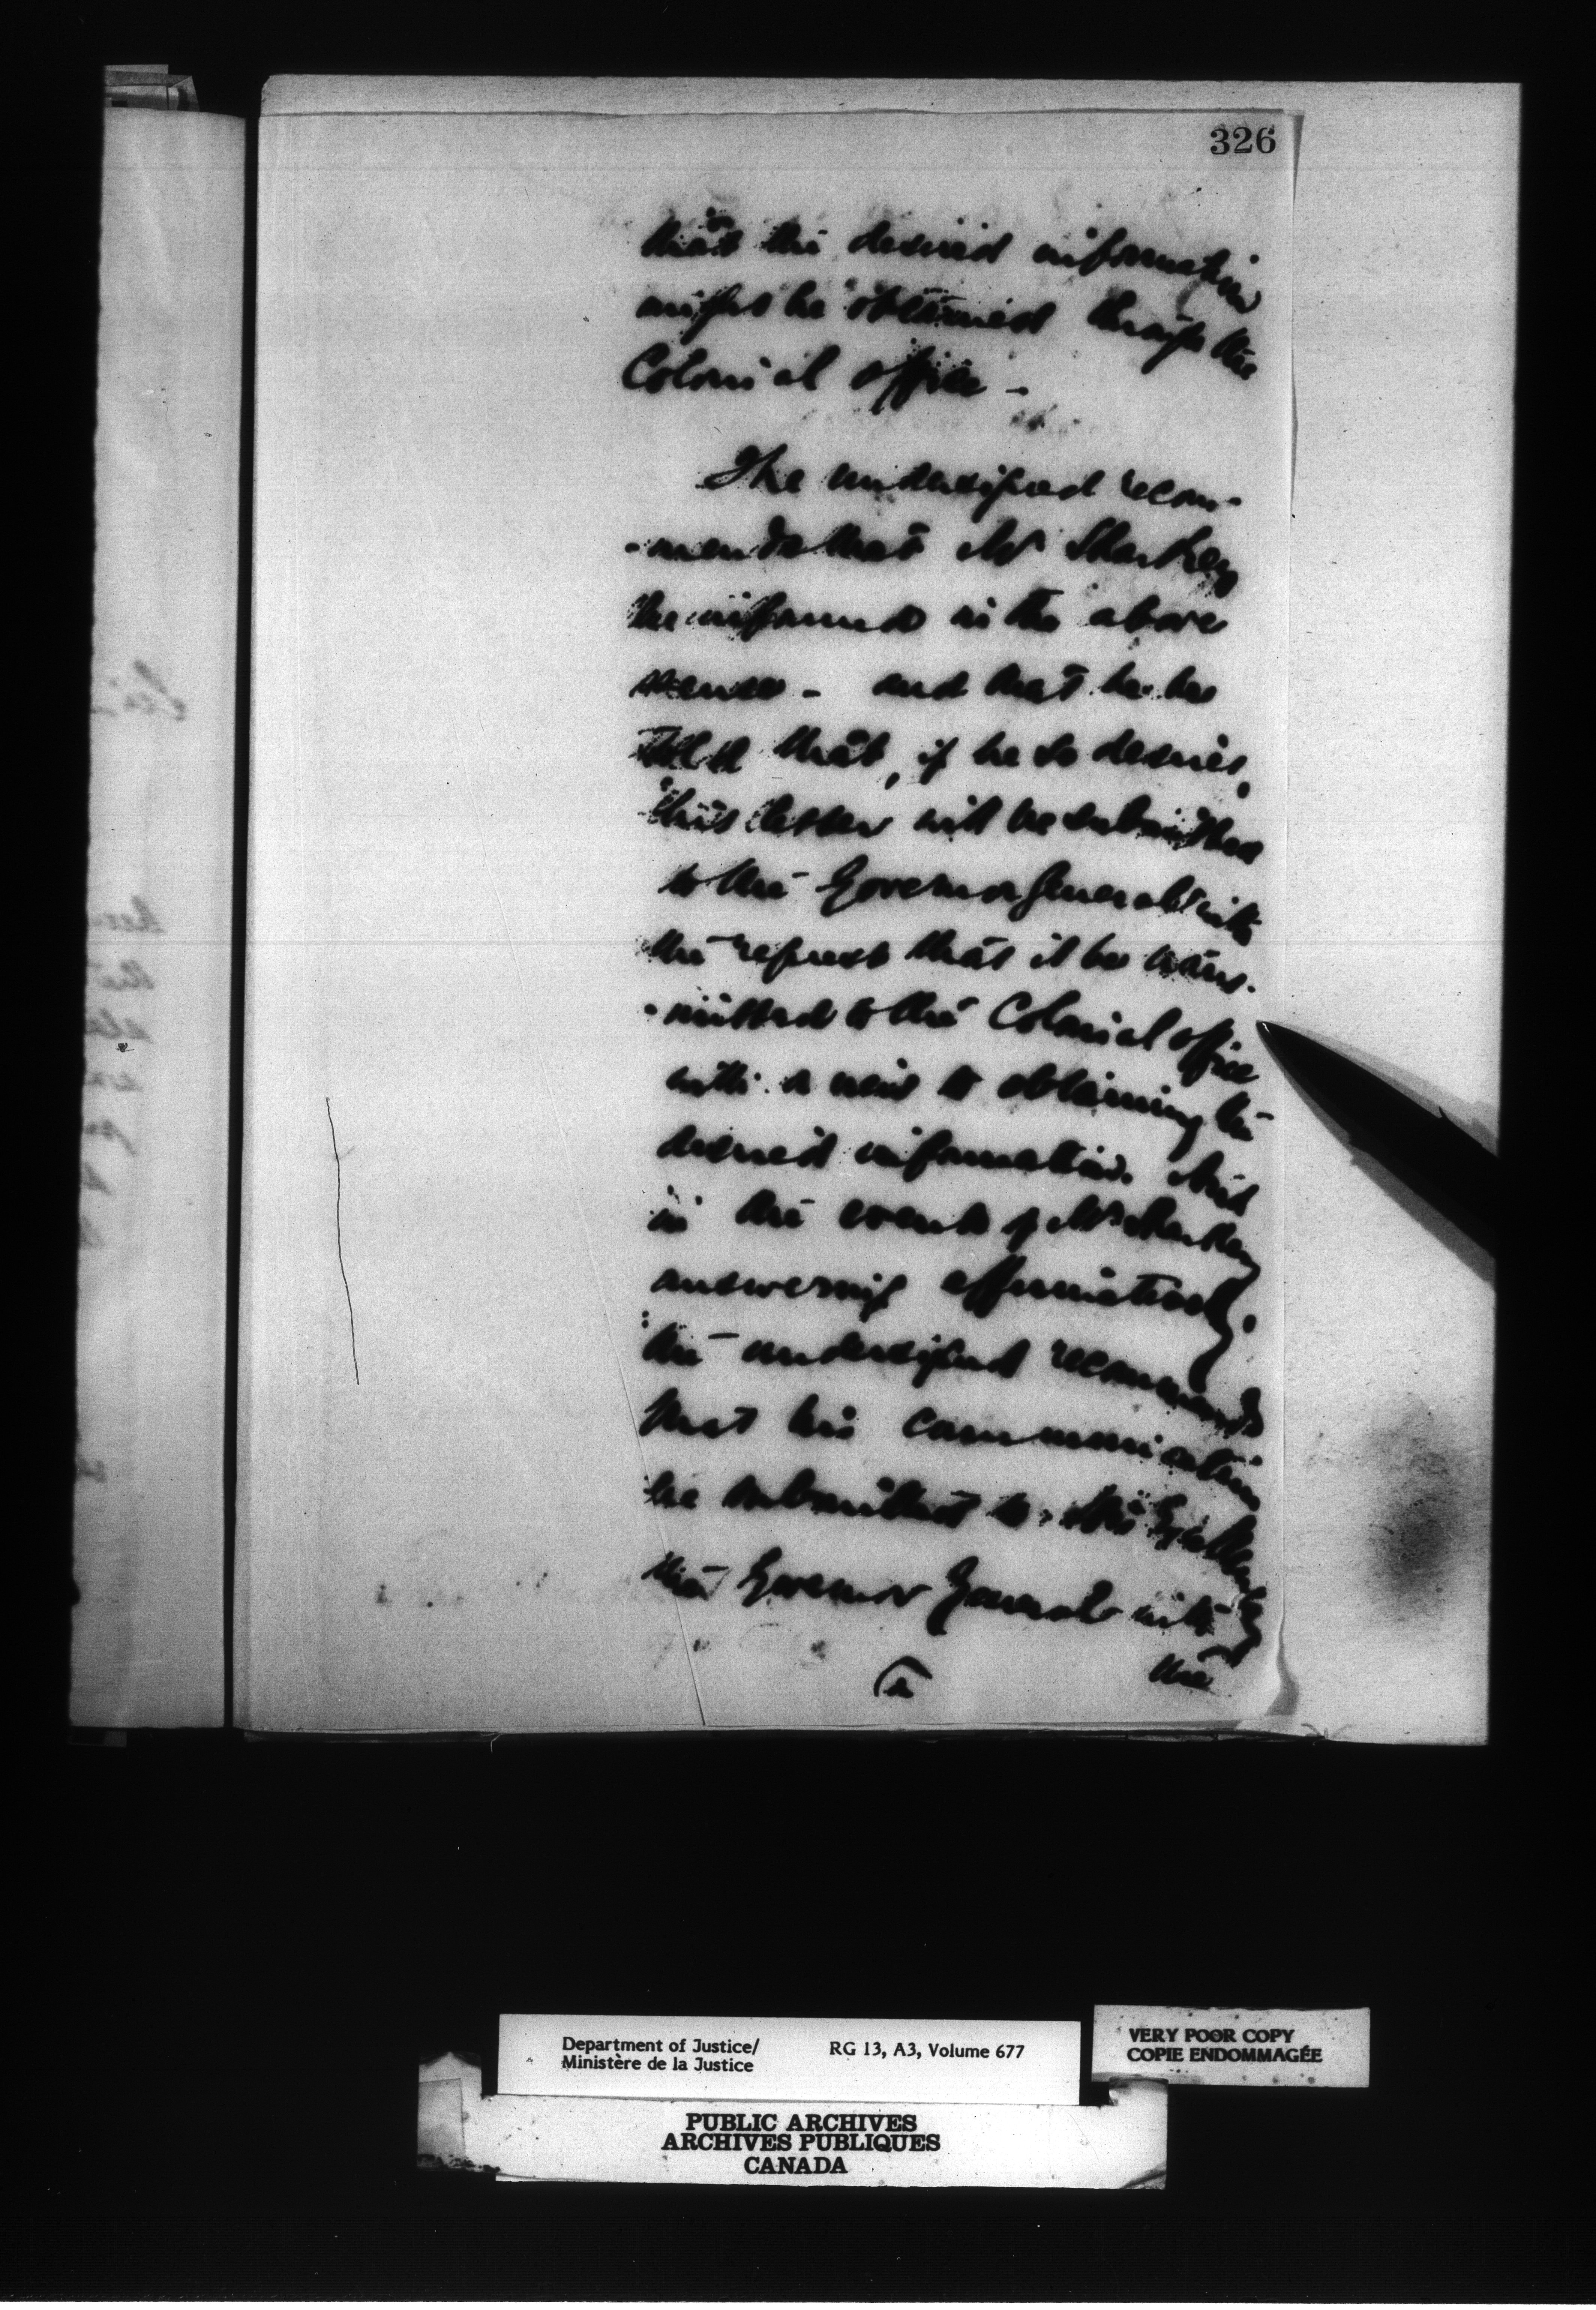 326
that the desired information
might be obtained through the
Colonial office -
The undersigned recom-
-mends that Mr Sharkey
be informed in the above
sense - and that he be
told that, if he so desires,
his letter will be submitted
to the Governor General with
the request that it be trans-
-mitted to the Colonial office
with a view to obtaining the
desired information. And
in the event of Mr Sharkey
answering affirmatively
the undersigned recommends
that his communication
be submitted to His Excellency
the Governor General with
the
Department of Justice/
Ministère de la Justice
RG 13, A3, Volume 677
VERY POOR COPY
COPIE ENDOMMAGÉE
PUBLIC ARCHIVES
ARCHIVES PUBLIQUES
CANADA